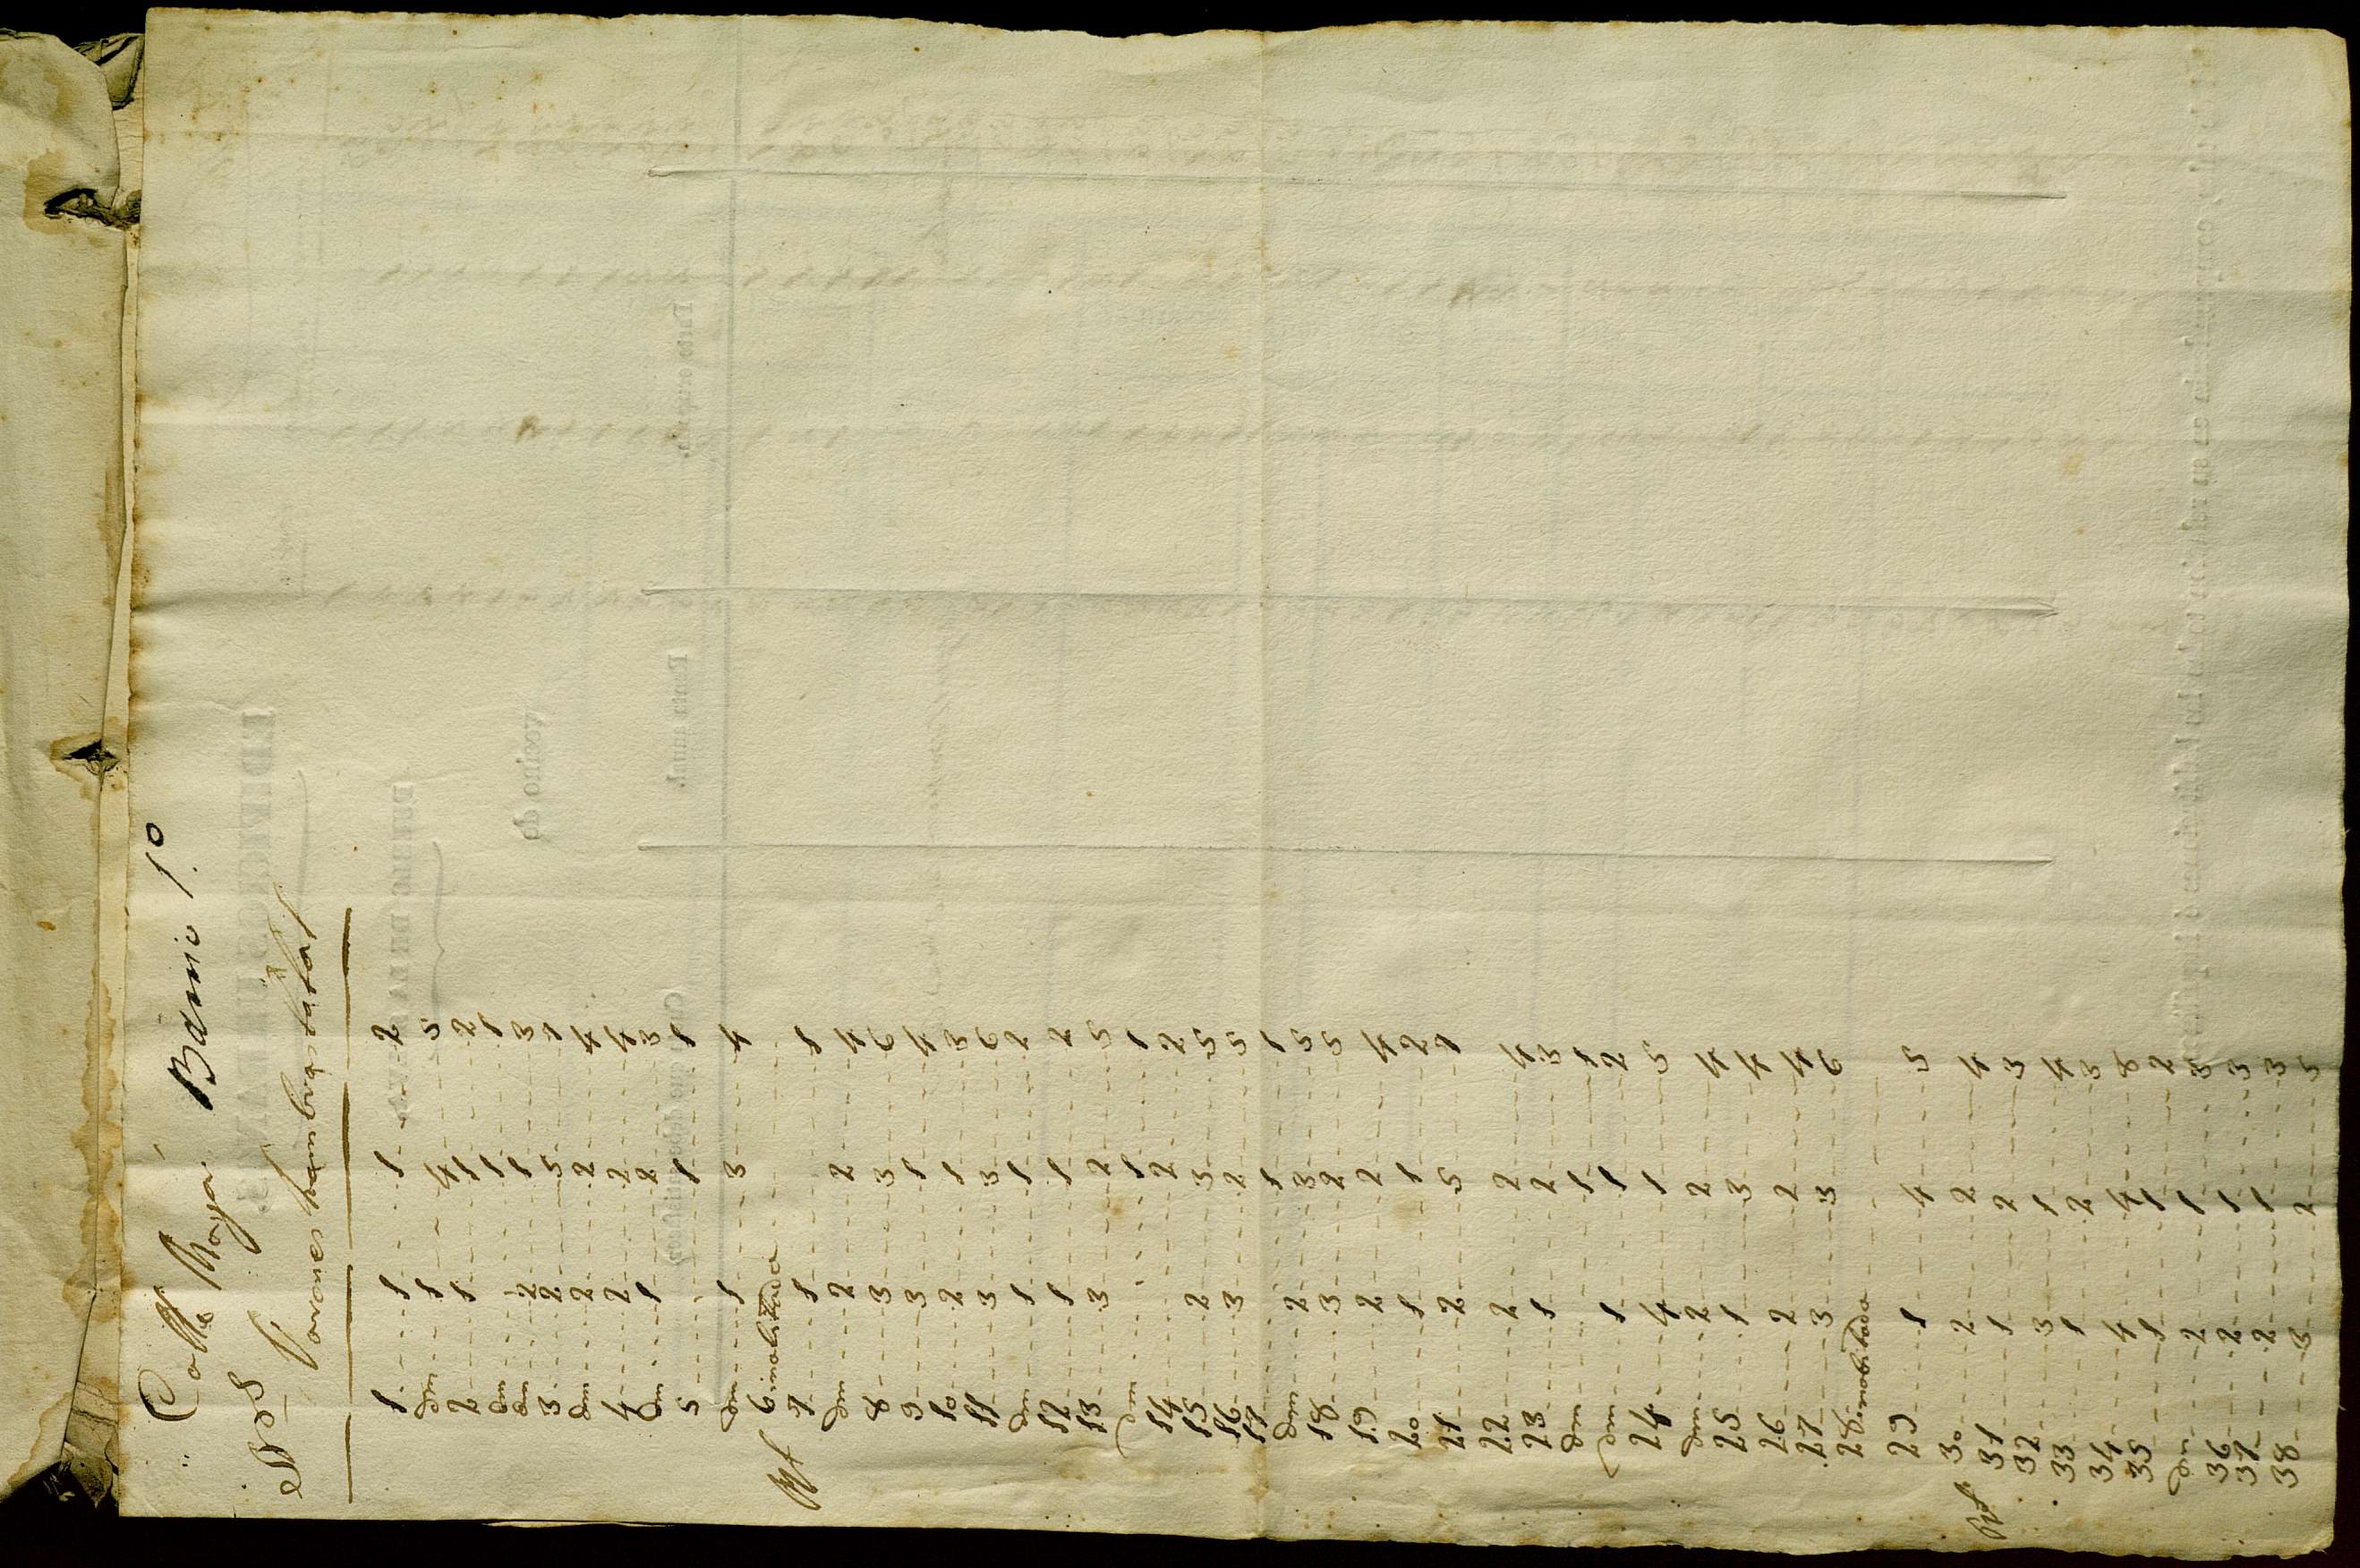 Calle Mayor Barrio 1.º
Nos Varones hembras totales
1 1 1 2
dm 1 4 5
2 1 1 2
dm 1 1
dm 2 1 3
3 2
dm 2 2 4
4 2 2 4
dm 1 2 3
5 1 1
dm 1 3 4
6 inabilitada
7 1 1
dm 2 2 4
8 3 3 6
9 3 1 4
10 2 1 3
11 3 3 6
dm 1 1 2
12 1 1 2
13 3 2 5
dm 1 1
14 2 2
15 2 3 5
16 3 2 5
17 1 1
dm 2 3 5
18 3 2 5
19 2 2 4
20 1 1 2
21 2 5 7
22 2 2 4
23 1 2 3
dm 1 1
dm 1 1 2
24 4 1 5
dm 2 2 4
25 1 3 4
26 2 2 4
27 3 3 6
28 inabilitada
29 1 4 5
30 2 2 4
31 1 2 3
32 3 1 4
33 1 2 3
34 4 4 8
35 1 1 2
dm 2 1 3
36 2 1 3
37 2 1 3
38 3 2 5